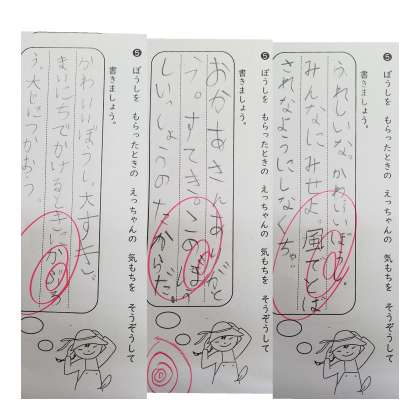 ❺ ぼうしを もらったときの えっちゃんの 気もちを そうぞうして
書きましょう。
うれしいな。かわいいぼうし。
みんなにみせよ。風でとば
されなようにしなくちゃ。
❺ ぼうしを もらったときの えっちゃんの 気もちを そうぞうして
書きましょう。
おかあさんありがと
う。すてき。この
しいっしょうのたからだ。
❺ ぼうしを もらったときの えっちゃんの 気もちを そうぞうして
書きましょう。
かわいいぼうし、大すき。
まいにちでかけるときにかぶろ
う。大じにつかおう。